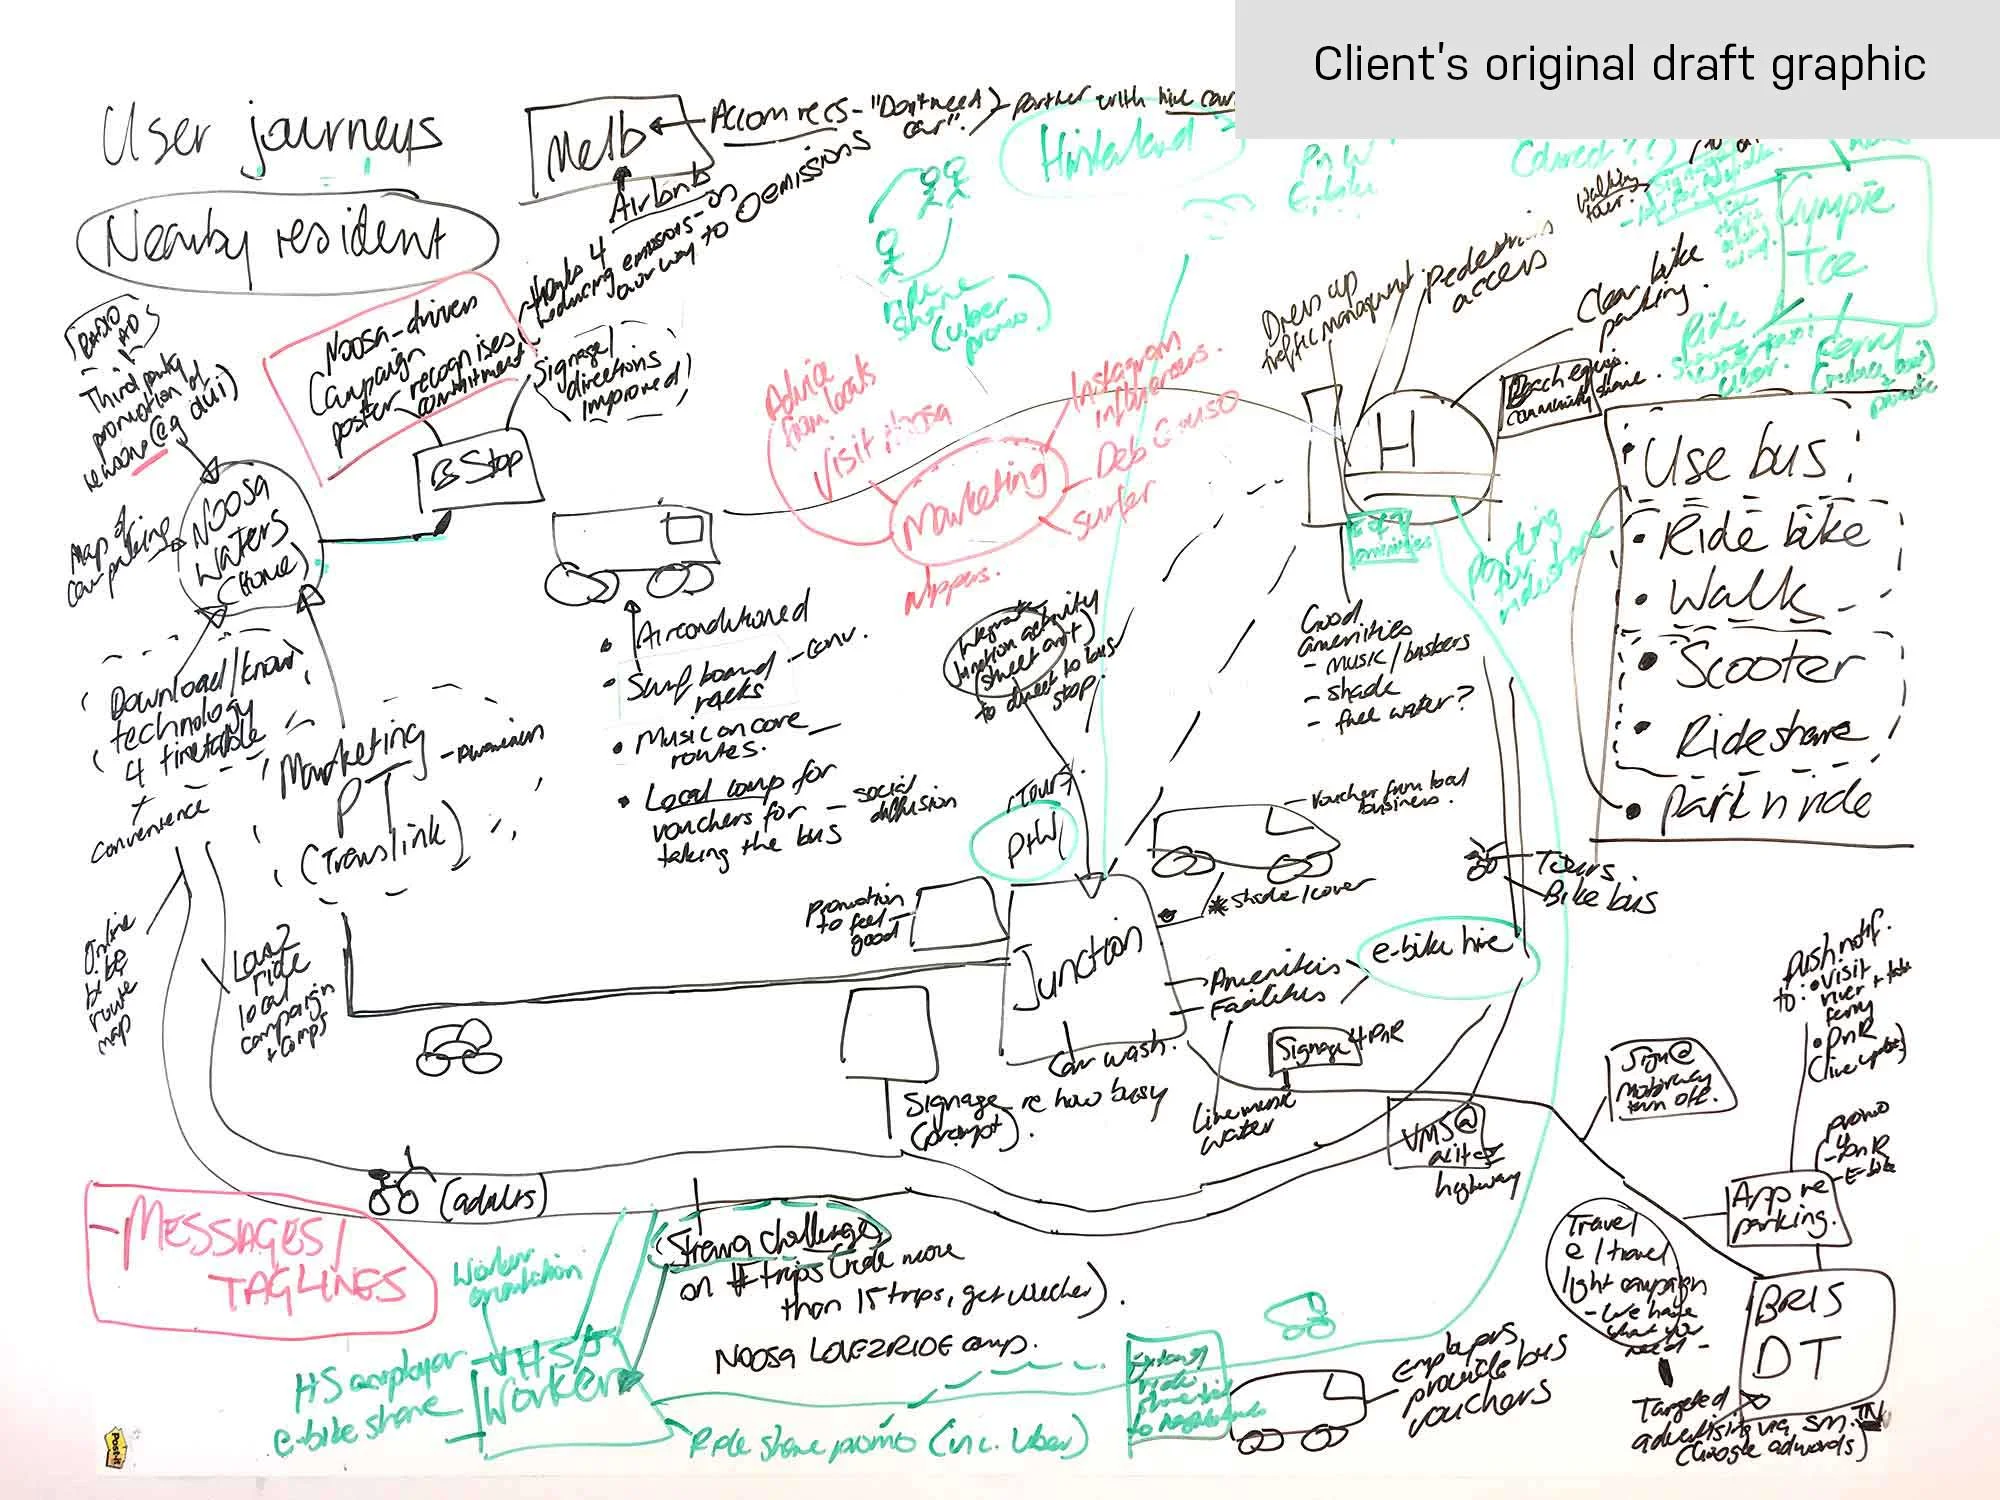 Client's original draft graphic
User journeys
Nearby resident
Melb
Accom recs - "Don't need
car".
partner with hire car
Airbnb
thanks 4
reducing emissions - on
our way to 0 emissions
Hinterland
RADIO
ADS
Third party
promotion of
Noosa-driven
Campaign
poster recognises
commitment
Signage/
directions
improved
B Stop
Noosa
Waters
(Home)
Map of
car parking
ride
share
(uber
promo)
Advice
from locals
Visit Noosa
Marketing
Instagram
influencers.
Deb Caruso
surfer
nippers.
Dress up
traffic management
pedestrian
access
Clear bike
parking.
Walking
tour.
Gympie
Tce
Ride
Ferry
H
Parking
for
rideshare
Good
amenities
- music/buskers
- shade
- free water?
Use bus
Ride bike
Walk
Scooter
Rideshare
Park n ride
Airconditioned
Surfboard - conv.
racks
Music on core
routes.
Local comp for
vouchers for - social
taking the bus diffusion
Integrate
junction activity
(street art)
to direct to bus
stop.
Download/know
technology
4 timetable
+
convenience
Marketing
PT
(Translink)
Online
bike
route
map
Love2
ride
local
campaign
+ comps
(Tour)
Voucher from local
business.
* shade/cover
promotion
to feel
good
Junction
Amenities
Facilities
e-bike hire
Car wash.
Tours
Bike bus
Signage 4 PnR
Signage re how busy
(prompt).
Live music
water
VMS @
highway
Sign @
motorway
turn off.
push notif.
to: • visit
river + take
ferry
• PnR
(live update)
promo
- PnR
- E-bike
App re
parking.
(adults)
- MESSAGES/
TAGLINES
Worker
Strava challenge
on # trips (ride more
than 15 trips, get voucher).
NOOSA LOVE2RIDE comp.
HS employer
e-bike share
HS
Worker
Ride share promo (inc. Uber)
Employers
provide bus
vouchers
Travel
light campaign
- we have
what you
need -
BRIS
DT
Targeted
advertising via sm.
(Google adwords)
Post-it